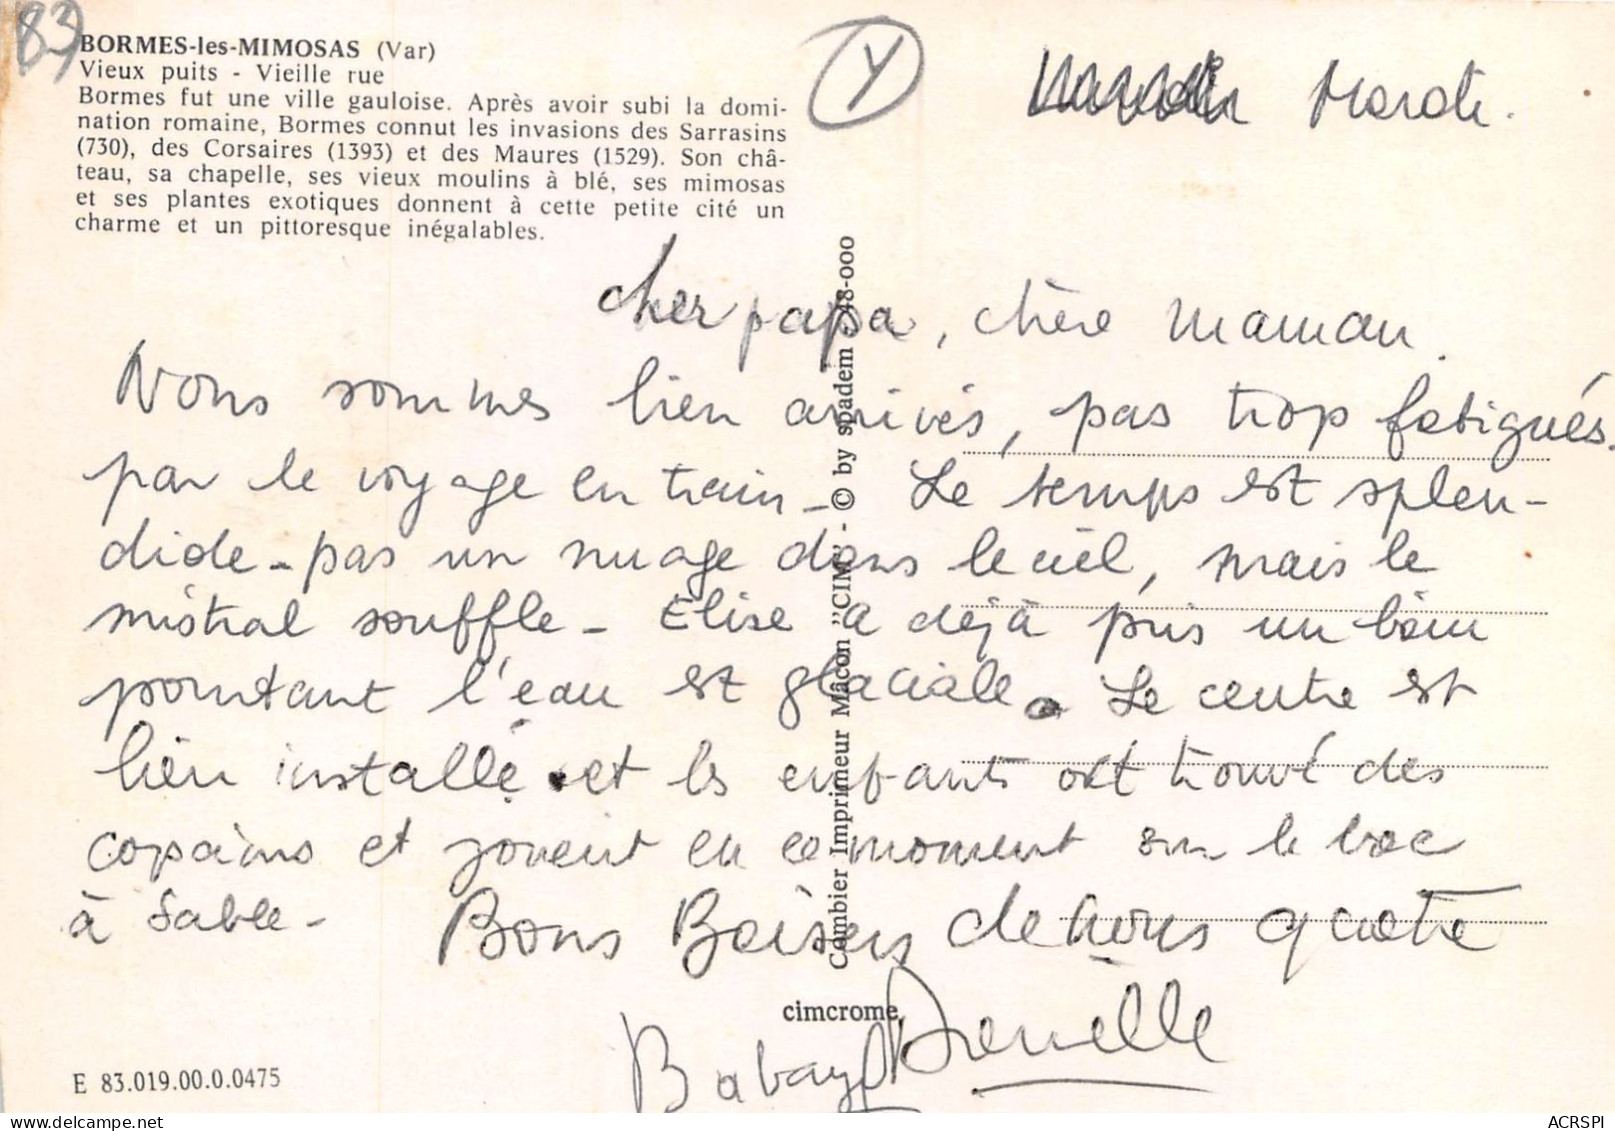 83
BORMES-les-MIMOSAS (Var)
Vieux puits - Vieille rue
Bormes fut une ville gauloise. Après avoir subi la domi-
nation romaine, Bormes connut les invasions des Sarrasins
(730), des Corsaires (1393) et des Maures (1529). Son châ-
teau, sa chapelle, ses vieux moulins à blé, ses mimosas
et ses plantes exotiques donnent à cette petite cité un
charme et un pittoresque inégalables.
Y
Mardi.
cher papa, chère maman.
Nous sommes bien arrivés, pas trop fatigués.
par le voyage en train - Le temps est splen-
dide - pas un nuage dans le ciel, mais le
mistral souffle - Elise a déjà pris un bain
pourtant l'eau est glaciale. Le centre est
bien installé et les enfants ont trouvé des
copains et jouent en ce moment sur le bac
à sable - Bons Baisers de nous quatre
Combier Imprimeur Mâcon "CIM" - © by spadem 748-000
cimcrome
E 83.019.00.0.0475
ACRSPI